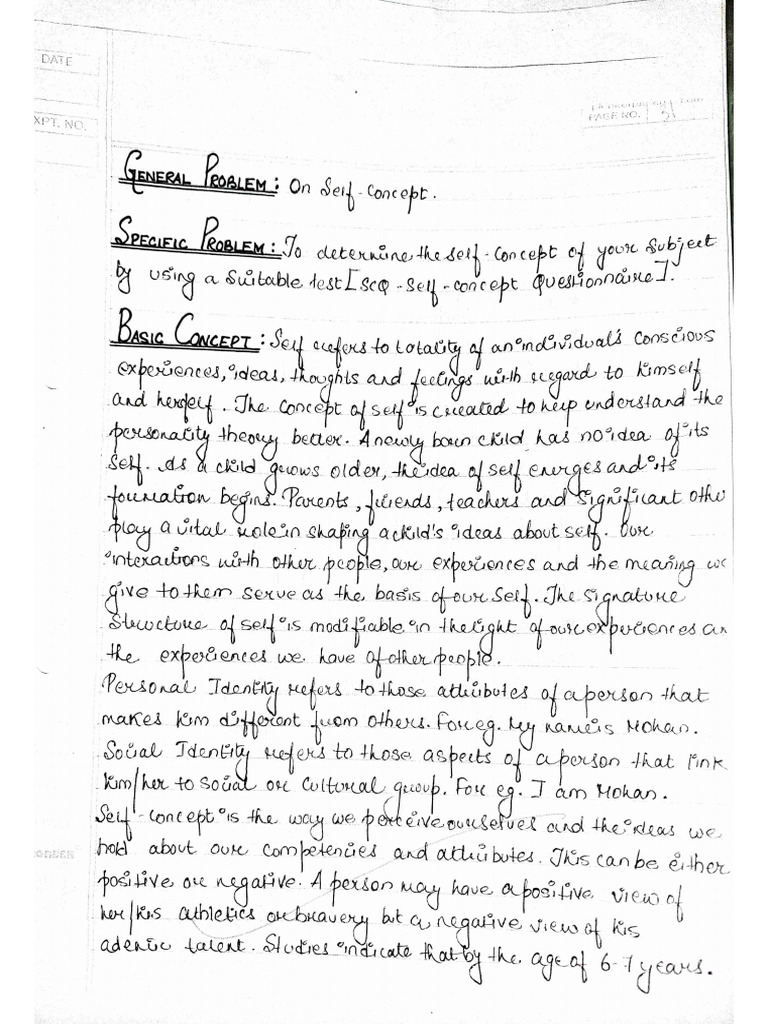 DATE
EXPT. NO.
PAGE NO.
GENERAL PROBLEM: On Self-Concept.
SPECIFIC PROBLEM: To determine the self-concept of your subject
by using a suitable test [SCQ-Self-concept Questionnaire].
BASIC CONCEPT: Self refers to totality of an individual's conscious
experiences, ideas, thoughts and feelings with regard to himself
and herself. The concept of self is created to help understand the
personality theory better. A newly born child has no idea of its
self. As a child grows older, the idea of self emerges and its
foundation begins. Parents, friends, teachers and significant othe
play a vital role in shaping a child's ideas about self. Our
interactions with other people, our experiences and the meaning we
give to them serve as the basis of our self. The signature
structure of self is modifiable in the light of our experiences an
the experiences we have of other people.
Personal Identity refers to those attributes of a person that
makes him different from others. For eg. My name is Mohan.
Social Identity refers to those aspects of a person that link
him/her to social or cultural group. For eg. I am Mohan.
Self-concept is the way we perceive ourselves and the ideas we
hold about our competencies and attributes. This can be either
positive or negative. A person may have a positive view of
her/his athletics or bravery but a negative view of his
ademic talent. Studies indicate that by the age of 6-7 years.